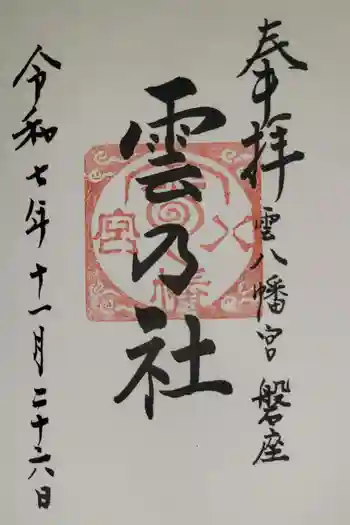 奉拝
雲八幡宮 磐座
雲乃社
雲八幡宮
令和七年十一月二十六日